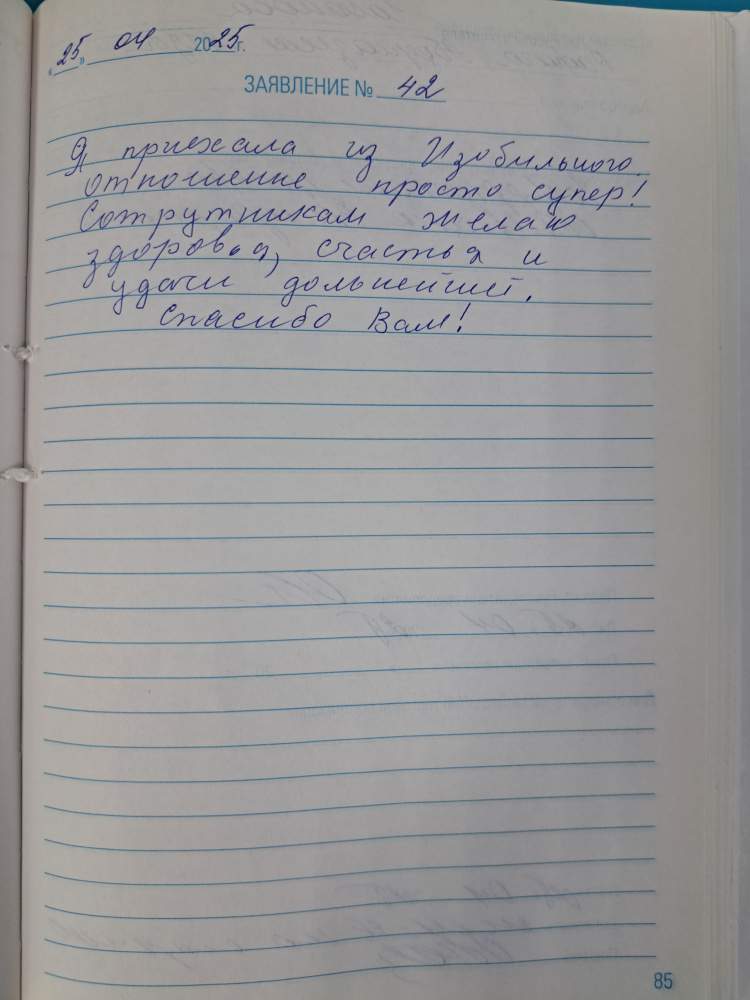 «25» 04 2025г.
ЗАЯВЛЕНИЕ № 42
Я приехала из Изобильного.
отношение просто супер!
Сотрутникам желаю
здоровья, счастья и
удачи дольнейшей.
Спасибо Вам!
85